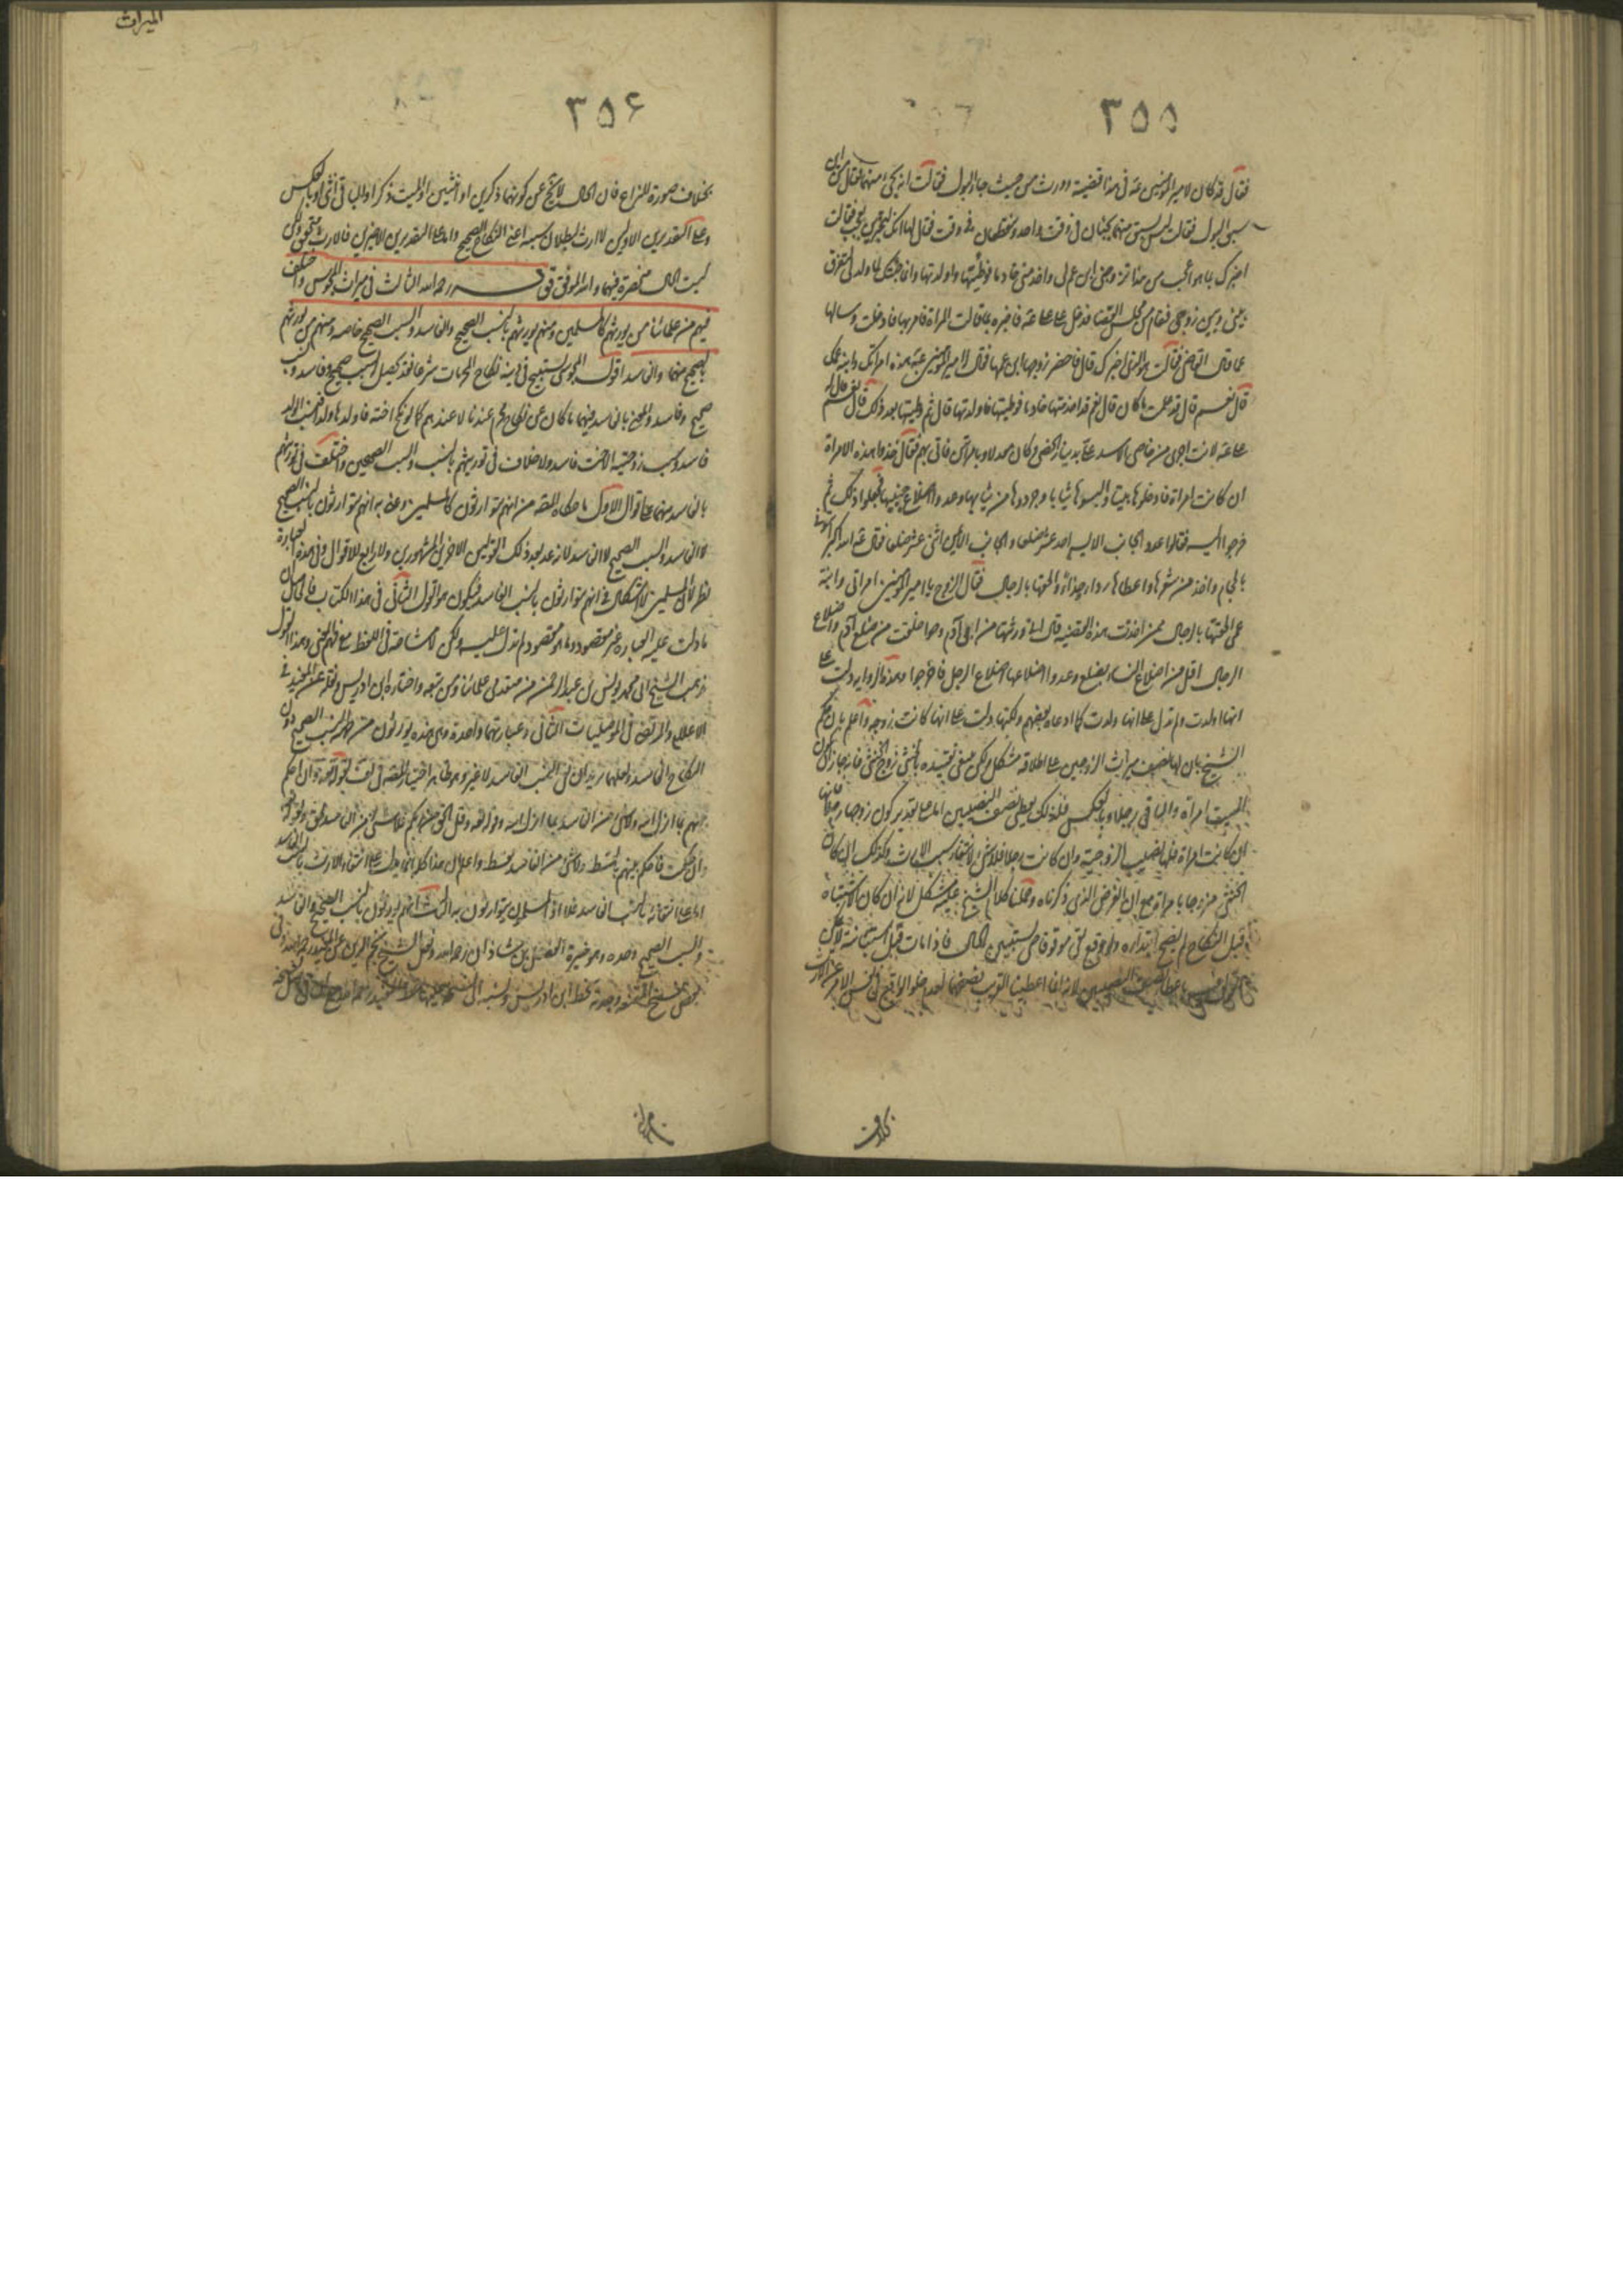 ٣٥٥
فقال قد كان لامير المؤمنين عـ في هذا قضية وورث من حيث جاء البول فقالت انه يجئ منهما فقال من اين
سبق البول فقالت ليس يسبق منهما يجيئان في وقت واحد وينقطعان في وقت فقال لها انك لتخبرين بعجب فقالت
اخبرك بما هو اعجب من هذا تزوجني ابن عم لي واخدمني خادما فوطئتها واولدتها وانما جئتك لما ولد لي لتفرق
بيني وبين زوجي فقام من مجلس القضاء فدخل على علي عـ فاخبره بما قالت المراة فامر بها فادخلت وسالها
عما قال القاضي فقالت هو الذي اخبرك قال فاحضر زوجها ابن عمها فقال له امير المؤمنين عـ هذه امراتك وابنة عمك
قال نعم قال قد علمت ما كان قال نعم قد اخدمتها خادما فوطئتها فاولدتها قال ثم وطئتها بعد ذلك قال نعم قال له
علي عـ لانت اجرى من خاصي الاسد علي بدينار الخصي وكان معدلا وبامراتين فاتي بهم فقال خذوا هذه الامراة
ان كانت امراة فادخلوها بيتا والبسوها ثيابا وجردوها من ثيابها وعدوا اضلاع جنبيها ففعلوا ذلك ثم
خرجوا اليه فقالوا عدد الجانب الايسر احد عشر ضلعا والجانب الايمن اثنى عشر ضلعا فقال عـ الله اكبر ايتوني
بالحجام واخذ من شعرها واعطاها رداء وحذاء والحقها بالرجال فقال الزوج يا امير المؤمنين امراتي وابنة
عمي الحقتها بالرجال ممن اخذت هذه القضية قال اني ورثتها من ابي آدم وحوا خلقت من ضلع آدم واضلاع
الرجال اقل من اضلاع النساء بضلع وعدد اضلاعها اضلاع الرجل فاخرجوا وهذه الرواية دلت على
انها اولدت ولم تدل على انها ولدت كما ادعاه بعضهم ولكنها دلت على انها كانت زوجة واعلم بان حكم
الشيخ بان لها نصف ميراث الزوجين على اطلاقه مشكل ولكن ينبغي تقييده بخنثى زوج الخنثى فانه جاز كون
الميت امراة والباقي رجلا وبالعكس فلذلك يعطى نصف النصيبين اما على تقدير كون زوجها رجلا فانها
ان كانت امراة فلها نصيب الزوجية وان كانت رجلا فلا شئ لانتفاء سبب الارث وكذلك ان كان
الخنثى متزوجا بامراة مع ان الفرض الذي ذكرناه وحملنا كلام الشيخ عليه مشكل لانه ان كان الاشتباه
قبل النكاح لم يصح ابتداؤه ولو وقع بقي موقوفا حتى يستبين الحال فاذا مات قبل استبانته لا يمكن
باعطاء نصف النصيبين لانه اذا اعطينا الورثة نصفهما لعدم خلو الواقع في نفس الامر عن الارث
بخلاف
٣٥٦
الميراث
بخلاف صورة النزاع فان الحال لا يخ عن كونهما ذكرين او انثيين او الميت ذكرا والباقي انثى او بالعكس
وعلى التقديرين الاولين لا ارث لبطلان سببه اعني النكاح الصحيح واما على التقديرين الاخيرين فالارث متحقق ولكن
ليست الحال منحصرة فيهما والله الموفق قال قدس سره رحمه الله الثالث في ميراث المجوس واختلف
فيهم فمن علمائنا من يورثهم كالمسلمين ومنهم يورثهم بالنسب الصحيح والفاسد والسبب الصحيح خاصة ومنهم من يورثهم
بالصحيح منهما والفاسد اقول المجوسي يستبيح في دينه نكاح المحرمات شرعا فقد يحصل له سبب صحيح وفاسد ونسب
صحيح وفاسد والمعني بالفاسد فيهما ما كان عن نكاح محرم عندنا لا عندهم كما لو نكح اخته فاولدها ولدا فنسب الولد
فاسد وسبب زوجية الاخت فاسد ولا خلاف في توريثهم بالنسب والسبب الصحيحين واختلف في توريثهم
بالفاسد منهما على اقوال الاول ما حكاه المصنف من انهم يتوارثون كالمسلمين وعنى به انهم يتوارثون بالنسب الصحيح
لا الفاسد والسبب الصحيح لا الفاسد لانه عد بعد ذلك القولين الاخرين المشهورين ولا رابع للاقوال وفي هذه العبارة
نظر لان المسلمين لا اشكال في انهم يتوارثون بالنسب الفاسد فيكون هو القول الثاني في هذا الكتاب فالحاصل ان
ما دلت عليه العبارة غير مقصود وما هو مقصود لم تدل عليه ولكن لا مشاحة في اللفظ مع فهم المعنى وهذا القول
مذهب الشيخ ابي محمد يونس بن عبد الرحمن من متقدمي علمائنا ومن تبعه واختاره ابن ادريس ونقله عن المفيد في
الاعلام والمرتضى في الموصليات الثاني وعبارتهما واحدة وهي هذه يورثون من جهة النسب الصحيح دون
النكاح الفاسد ولعلهما يريدان نفي السبب الفاسد لا غير وهو ظاهر اختيار المصنف في لف لقوله تعالى وان احكم
بينهم بما انزل الله ولا شئ من الفاسد بما انزل الله وقوله تعالى وقل الحق من ربكم فلا شئ من الفاسد بحق وقوله تعالى
وان حكمت فاحكم بينهم بالقسط ولا شئ من الفاسد بقسط واعلم ان هذا كله انما يدل على انتفاء الارث بالسبب الفاسد
اما على انتفائه بالنسب الفاسد فلا اذ المسلمون يتوارثون به الثالث انهم يورثون بالنسب الصحيح والفاسد
والسبب الصحيح وحده وهو خيرة الفضل بن شاذان رحمه الله ونقل الشيخ نجم الدين عن المفيد رحمه الله وفي
بعض نسخ المقنعة وجدته بخط ابن ادريس ونسبه الى